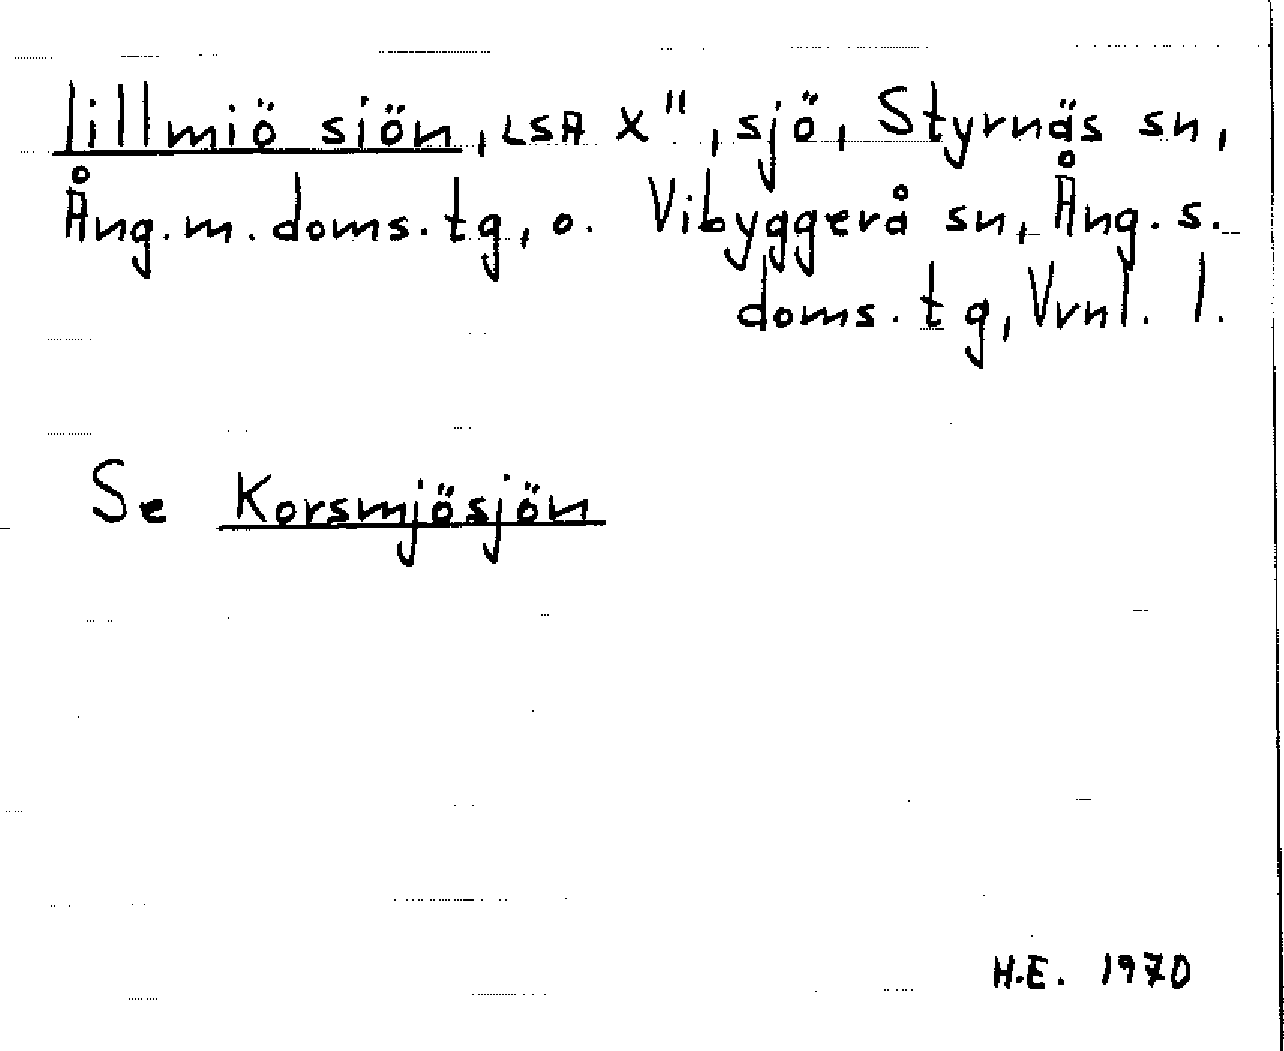 lillmiö siön, LSA X", sjö, Styrnäs sn,
Ång. m. doms. tg, o. Vibyggerå sn, Ång. s.
doms. tg, Vrnl. l.
Se Korsmjösjön
H.E. 1970